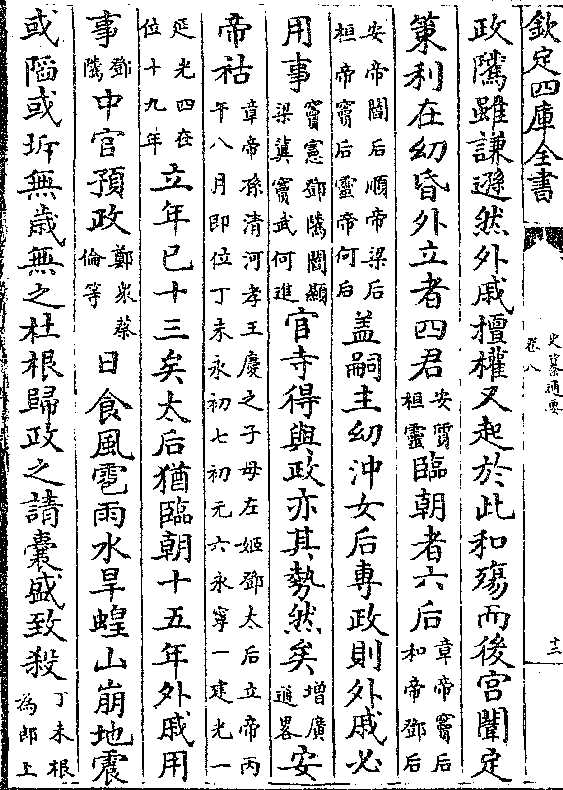 欽定四庫全書
史纂通要
卷八
十三
政隲雖謙遜然外戚擅權又起於此和殤而後宫闈定
策利在幼昏外立者四君安質桓靈臨朝者六后章帝竇后和帝鄧后
安帝閻后順帝梁后桓帝竇后靈帝何后盖嗣主幼沖女后專政則外戚必
用事竇憲鄧隲閻顯梁冀竇武何進宦寺得與政亦其勢然矣增廣進畧安
帝祜章帝孫清河孝王慶之子母左姬鄧太后立帝丙午八月即位丁未永初七初元六永寧一建光一
延光四在位十九年立年已十三矣太后猶臨朝十五年外戚用
事鄧隲中官預政鄭衆蔡倫等日食風雹雨水旱蝗山崩地震
或陷或坼無歲無之杜根歸政之請囊盛致殺丁未根為郎上